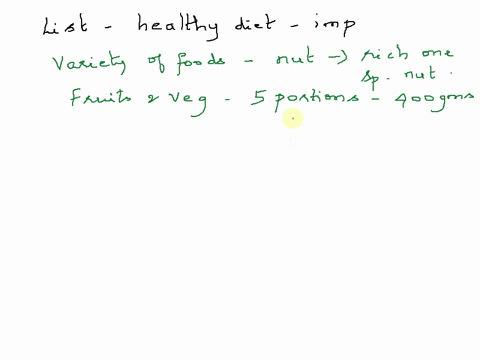 List - healthy diet - imp
Variety of foods - nut → rich one
sp. nut.
Fruits & veg - 5 portions - 400gms